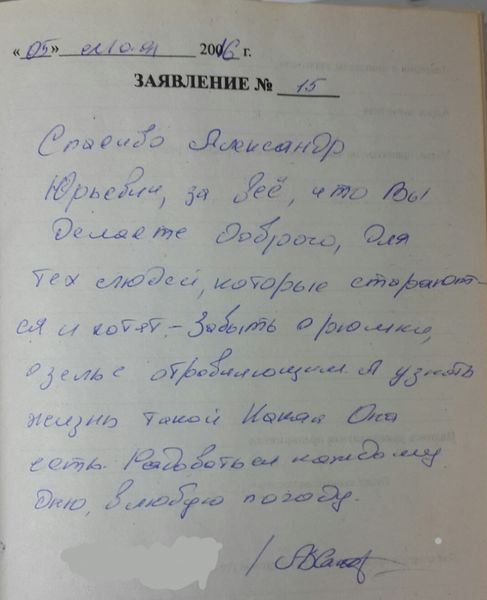 «05» 2016 г.
ЗАЯВЛЕНИЕ № 15
Спасибо Александр
Юрьевич, за всё, что Вы
Делаете Доброго, Для
тех людей, которые старают-
ся и хотят - Забыть о рюмки,
о зелье отравляющим А узнать
жизнь такой Какая Она
есть. Радоваться каждому
Дню, в любую погоду.